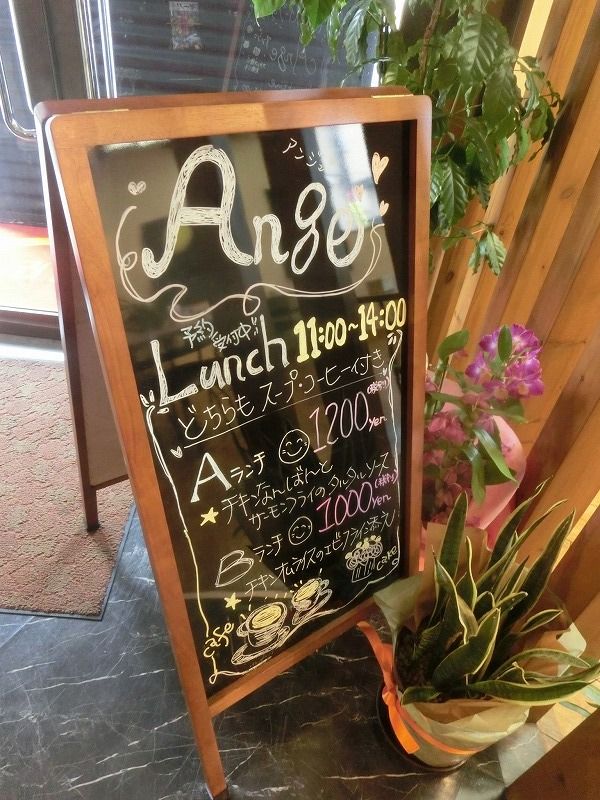 アンジュ
Ange
予約受付中!!
Lunch 11:00~14:00
どちらも スープ・コーヒー付き
Aランチ 1200yen(税別)
チキンなんばんと
サーモンフライのタルタルソース
Bランチ 1000yen(税別)
チキンオムライスのエビフライ添え
cafe
cake